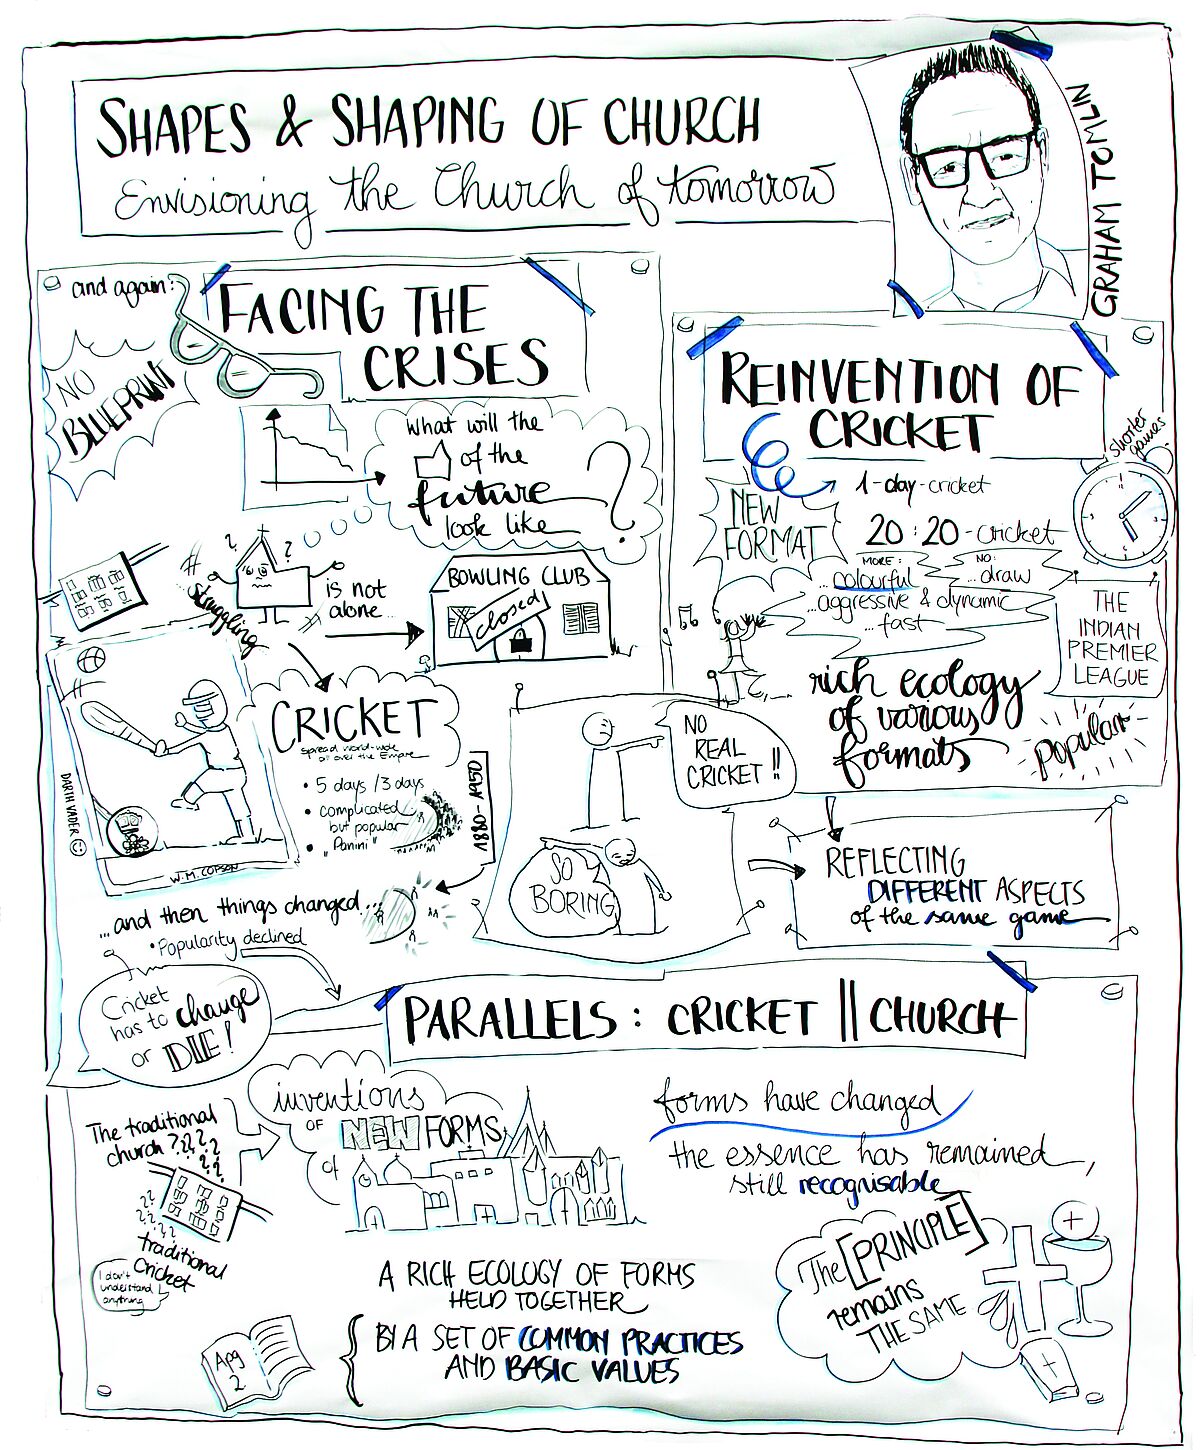 SHAPES & SHAPING OF CHURCH
Envisioning the Church of tomorrow
GRAHAM TOMLIN
and again:
NO
BLUEPRINT
FACING THE
CRISES
What will the
of the
future
look like
?
? ?
#
struggling
is not
alone...
BOWLING CLUB
closed
DARTH VADER
W.M. COPSON
CRICKET
spread world-wide
all over the Empire
• 5 days /3 days
• complicated
but popular
• "Panini"
1880-1950
...and then things changed...
• Popularity declined
Cricket
has to change
or DIE!
REINVENTION OF
CRICKET
NEW
FORMAT
1-day-cricket
20:20-cricket
shorter
games
MORE:
...colourful
NO:
...draw
...aggressive & dynamic
...fast
THE
INDIAN
PREMIER
LEAGUE
rich ecology
of various
formats
Popular
NO
REAL
CRICKET!!
SO
BORING
REFLECTING
DIFFERENT ASPECTS
of the same game
PARALLELS: CRICKET || CHURCH
The traditional
church ????
??
??
??
????
traditional
Cricket
I don't
understand
anything
inventions
OF NEW FORMS
of
forms have changed
the essence has remained,
still recognisable
The [PRINCIPLE]
remains
THE SAME
A RICH ECOLOGY OF FORMS
HELD TOGETHER
BY A SET OF COMMON PRACTICES
AND BASIC VALUES
Apg
2